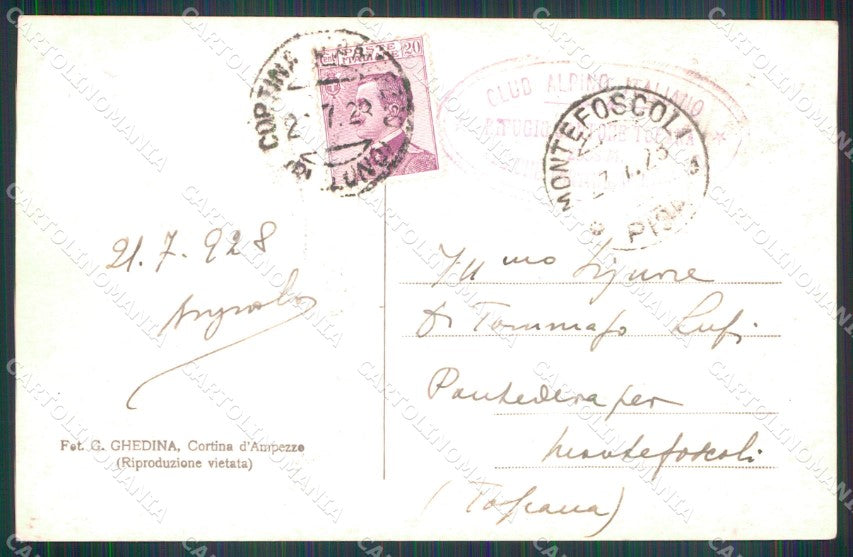 POSTE ITALIANE 20
CORTINA
2.7.28
CLUB ALPINO ITALIANO
RIFUGIO
MONTEFOSCOLI
PISA
21.7.928
Ill mo Signore
Dr Tommaso Lupi
Pontedera per
Montefoscoli
(Toscana)
Fot. G. GHEDINA, Cortina d'Ampezzo
(Riproduzione vietata)
CARTOLINOMANIA